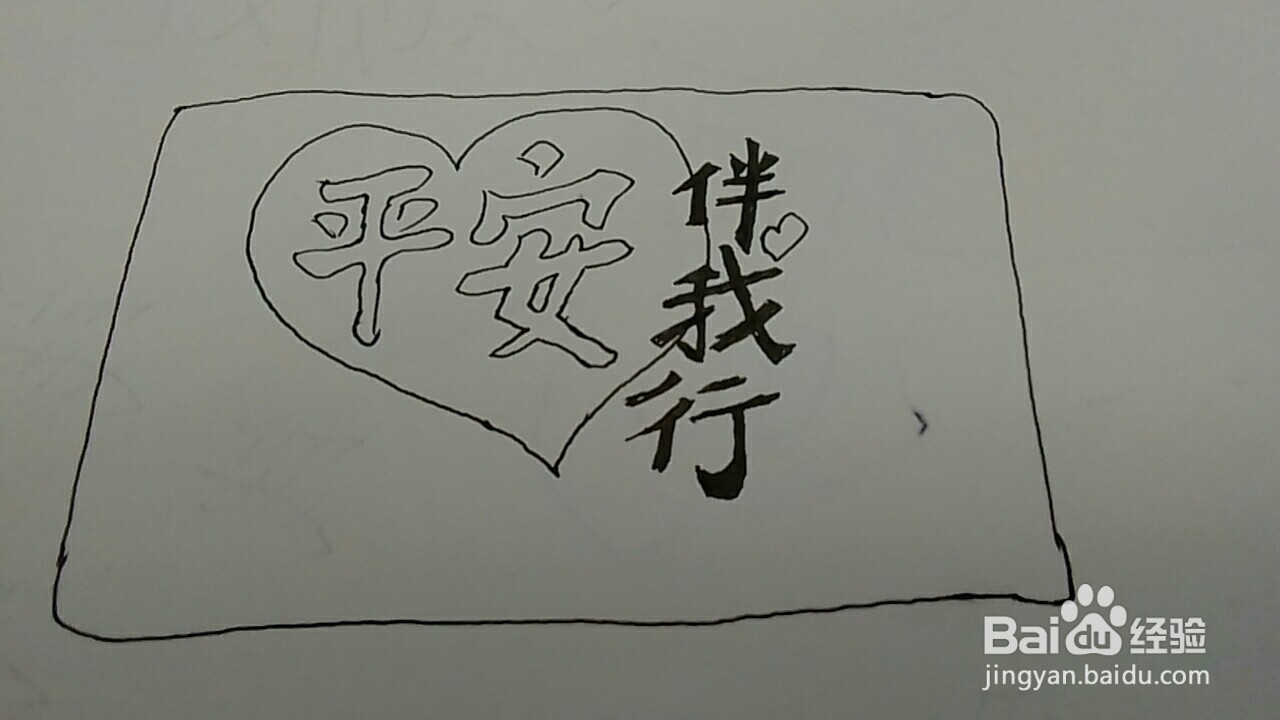 平安
伴我行
Baidu经验
jingyan.baidu.com